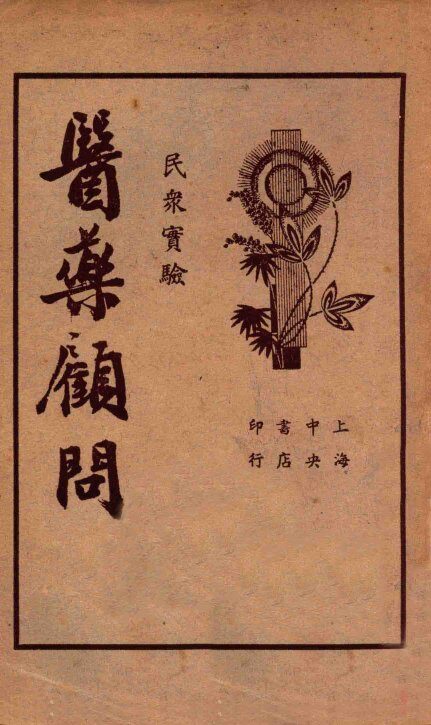 上海
中央
書店
印行
民衆實驗
醫藥顧問